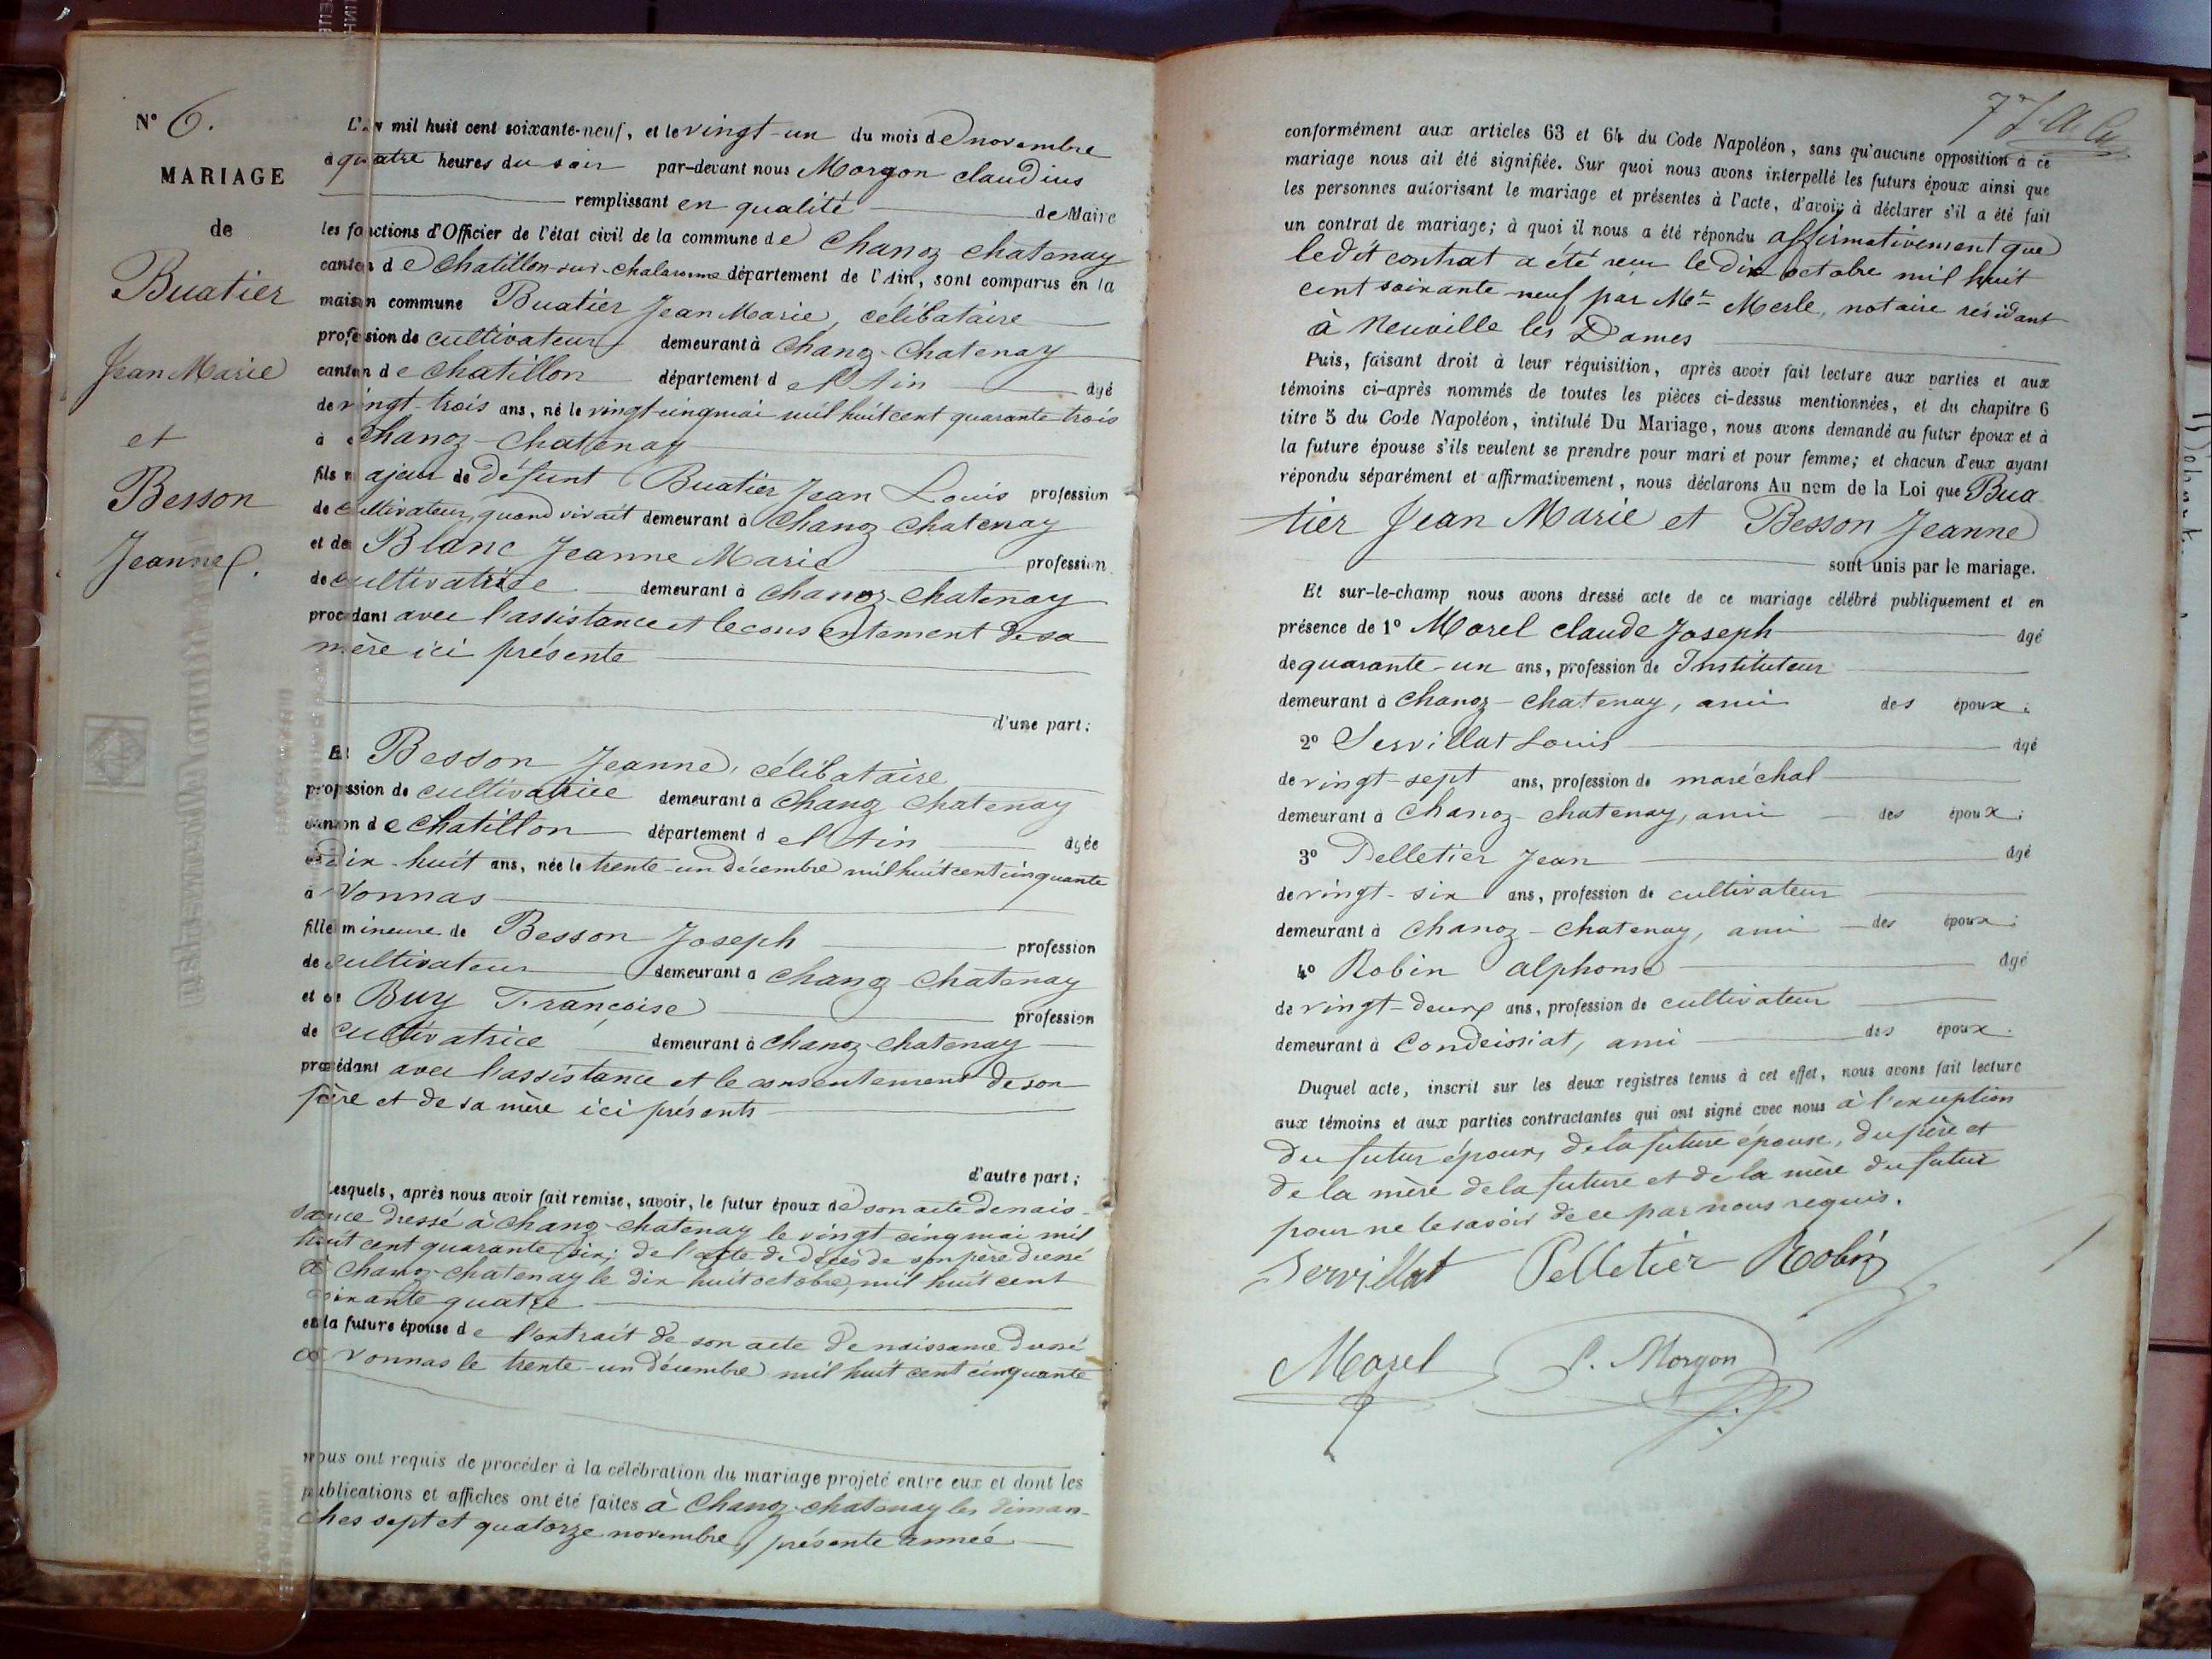 N° 6.
MARIAGE
de
Buatier
Jean Marie
et
Besson
Jeanne.
L'an mil huit cent soixante-neuf, et le vingt-un du mois de novembre
à quatre heures du soir par-devant nous Morgon claudius
remplissant en qualité de Maire
les fonctions d'Officier de l'état civil de la commune de Chanoz chatenay
canton de Chatillon-sur-chalaronne département de l'Ain, sont comparus en la
maison commune Buatier Jean Marie, célibataire
profession de cultivateur demeurant à Chanoz-Chatenay
canton de Chatillon département de l'Ain âgé
de vingt-trois ans, né le vingt-cinq mai mil huit cent quarante-trois
à Chanoz-Chatenay
fils majeur de défunt Buatier Jean Louis profession
de cultivateur, quand vivait demeurant à Chanoz Chatenay
et de Blanc Jeanne Marie profession
de cultivatrice demeurant à Chanoz-Chatenay
procédant avec l'assistance et le consentement de sa
mère ici présente
d'une part;
Et Besson Jeanne, célibataire
profession de cultivatrice demeurant à Chanoz Chatenay
canton de Chatillon département de l'Ain âgée
de dix-huit ans, née le trente-un décembre mil huit cent cinquante
à Vonnas
fille mineure de Besson Joseph profession
de cultivateur demeurant à Chanoz Chatenay
et de Buy Françoise profession
de cultivatrice demeurant à Chanoz-Chatenay
procédant avec l'assistance et le consentement de son
père et de sa mère ici présents
d'autre part;
Lesquels, après nous avoir fait remise, savoir, le futur époux de son acte de nais-
sance dressé à Chanoz-chatenay le vingt-cinq mai mil
huit cent quarante-six; de l'acte de décès de son père dressé
à Chanoz-Chatenay le dix huit octobre, mil huit cent
soixante quatre
et la future épouse de l'extrait de son acte de naissance dressé
à Vonnas le trente-un décembre mil huit cent cinquante
nous ont requis de procéder à la célébration du mariage projeté entre eux et dont les
publications et affiches ont été faites à Chanoz-chatenay les diman-
ches sept et quatorze novembre, présente année
conformément aux articles 63 et 64 du Code Napoléon, sans qu'aucune opposition à ce
mariage nous ait été signifiée. Sur quoi nous avons interpellé les futurs époux ainsi que
les personnes autorisant le mariage et présentes à l'acte, d'avoir à déclarer s'il a été fait
un contrat de mariage; à quoi il nous a été répondu affirmativement que
le dit contrat a été reçu le dix octobre mil huit
cent soixante-neuf par Me Merle, notaire résidant
à Neuville les Dames
Puis, faisant droit à leur réquisition, après avoir fait lecture aux parties et aux
témoins ci-après nommés de toutes les pièces ci-dessus mentionnées, et du chapitre 6
titre 5 du Code Napoléon, intitulé Du Mariage, nous avons demandé au futur époux et à
la future épouse s'ils veulent se prendre pour mari et pour femme; et chacun d'eux ayant
répondu séparément et affirmativement, nous déclarons Au nom de la Loi que Bua-
tier Jean Marie et Besson Jeanne
sont unis par le mariage.
Et sur-le-champ nous avons dressé acte de ce mariage célébré publiquement et en
présence de 1° Morel claude Joseph âgé
de quarante-un ans, profession de Instituteur
demeurant à Chanoz-Chatenay, ami des époux;
2° Servillat Louis âgé
de vingt-sept ans, profession de maréchal
demeurant à Chanoz-chatenay, ami des époux;
3° Pelletier Jean âgé
de vingt-six ans, profession de cultivateur
demeurant à Chanoz-Chatenay, ami des époux;
4° Robin alphonse âgé
de vingt-deux ans, profession de cultivateur
demeurant à Condeissiat, ami des époux.
Duquel acte, inscrit sur les deux registres tenus à cet effet, nous avons fait lecture
aux témoins et aux parties contractantes qui ont signé avec nous à l'exception
du futur époux, de la future épouse, du père et
de la mère de la future et de la mère du futur
pour ne le savoir de ce par nous requis.
Servillat Pelletier Robin
Morel C. Morgon